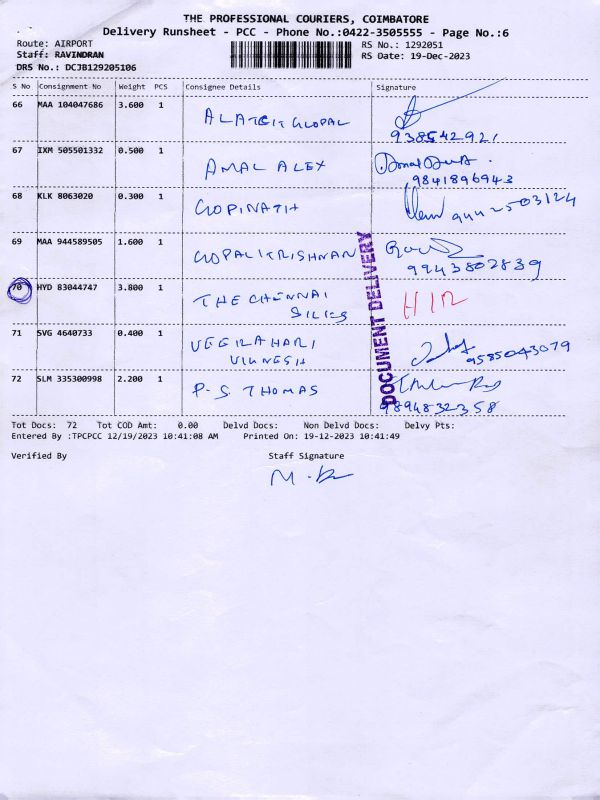 THE PROFESSIONAL COURIERS, COIMBATORE
Delivery Runsheet - PCC - Phone No.:0422-3505555 - Page No.:6
Route: AIRPORT
RS No.: 1292051
Staff: RAVINDRAN
RS Date: 19-Dec-2023
DRS No.: DCJB129205106
S No Consignment No Weight PCS Consignee Details Signature
66 MAA 104047686 3.600 1
67 IXM 505501332 0.500 1 AMAL ALEX
9841896943
68 KLK 8063020 0.300 1 GOPINATH 9442503124
69 MAA 944589505 1.600 1 GOPALKRISHNAN
9943802839
70 HYD 83044747 3.800 1 THE CHENNAI
SILKS
DOCUMENT DELIVERY
71 SVG 4640733 0.400 1 VEERAHARI
VIGNESH
9585043079
72 SLM 335300998 2.200 1 P.S THOMAS
9894832358
Tot Docs: 72 Tot COD Amt: 0.00 Delvd Docs: Non Delvd Docs: Delvy Pts:
Entered By :TPCPCC 12/19/2023 10:41:08 AM Printed On: 19-12-2023 10:41:49
Verified By Staff Signature